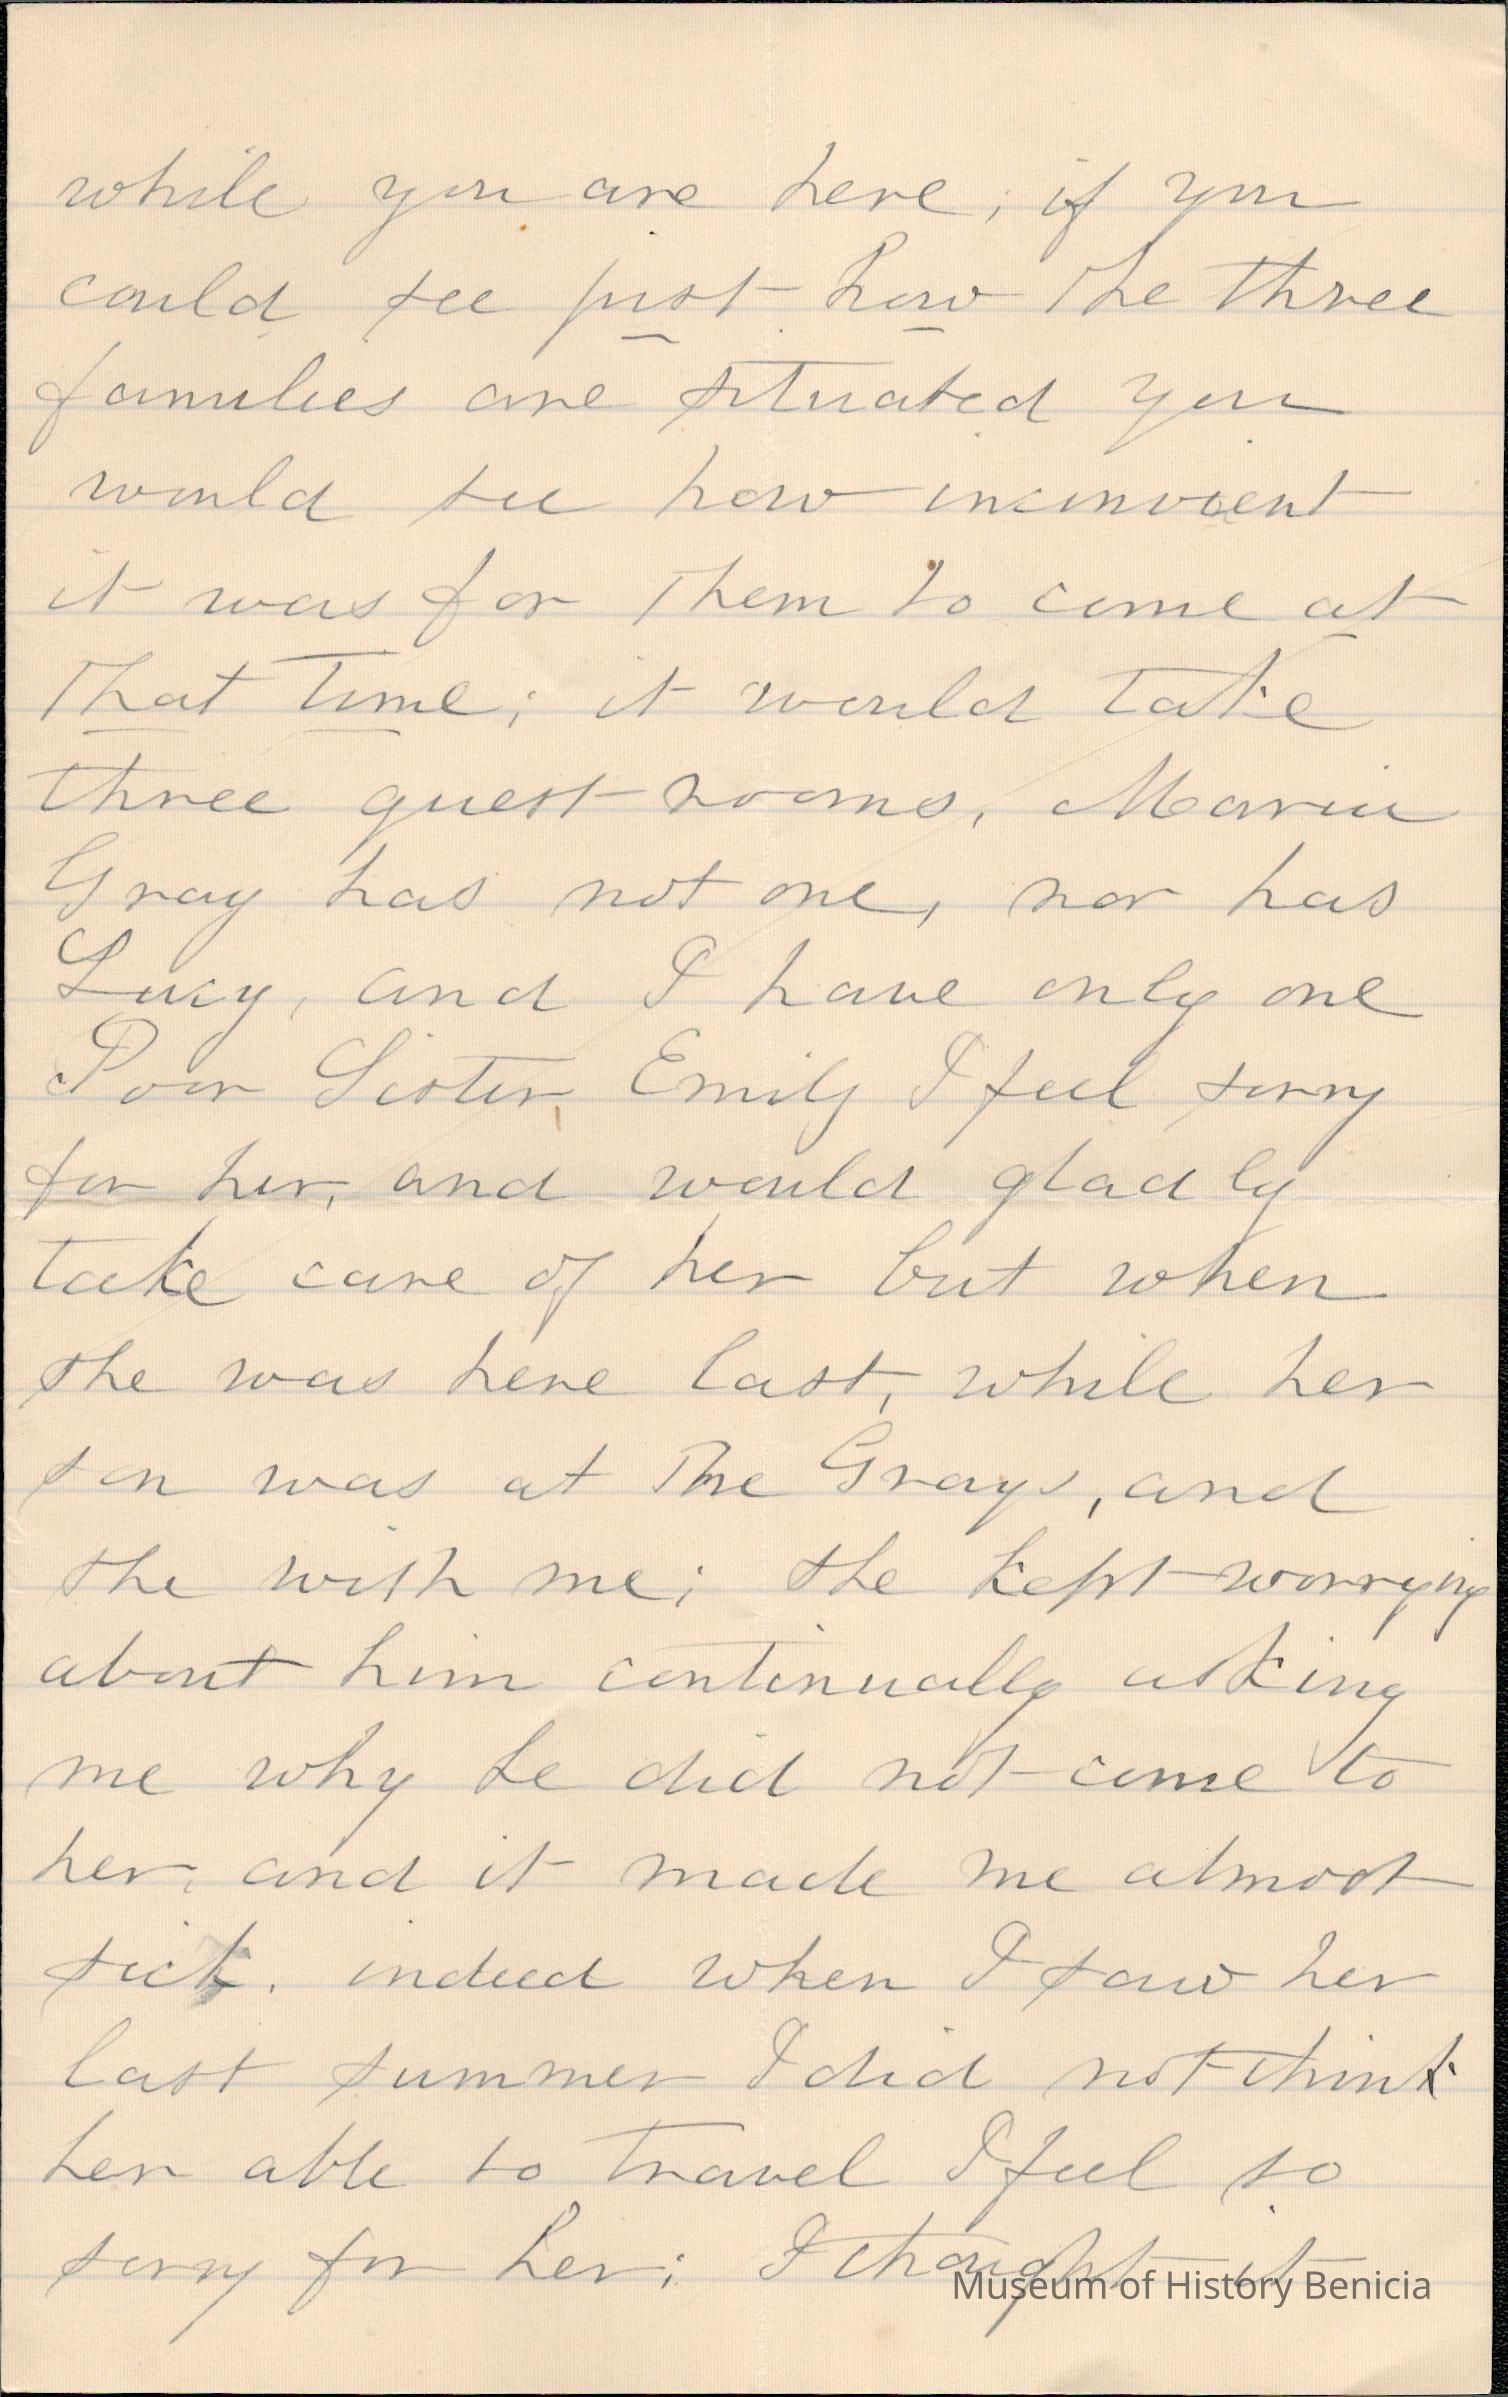 while you are here; if you
could see just how the three
families are situated you
would see how inconvient
it was for them to come at
that time; it would take
three guest-rooms, Maria
Gray has not one, nor has
Lucy, and I have only one
Poor Sister Emily I feel sorry
for her, and would gladly
take care of her but when
she was here last, while her
son was at the Grays, and
she with me; she kept worrying
about him continually asking
me why he did not come to
her, and it made me almost
sick. indeed when I saw her
last summer I did not think
her able to travel I feel so
sorry for her; I thought it
Museum of History Benicia